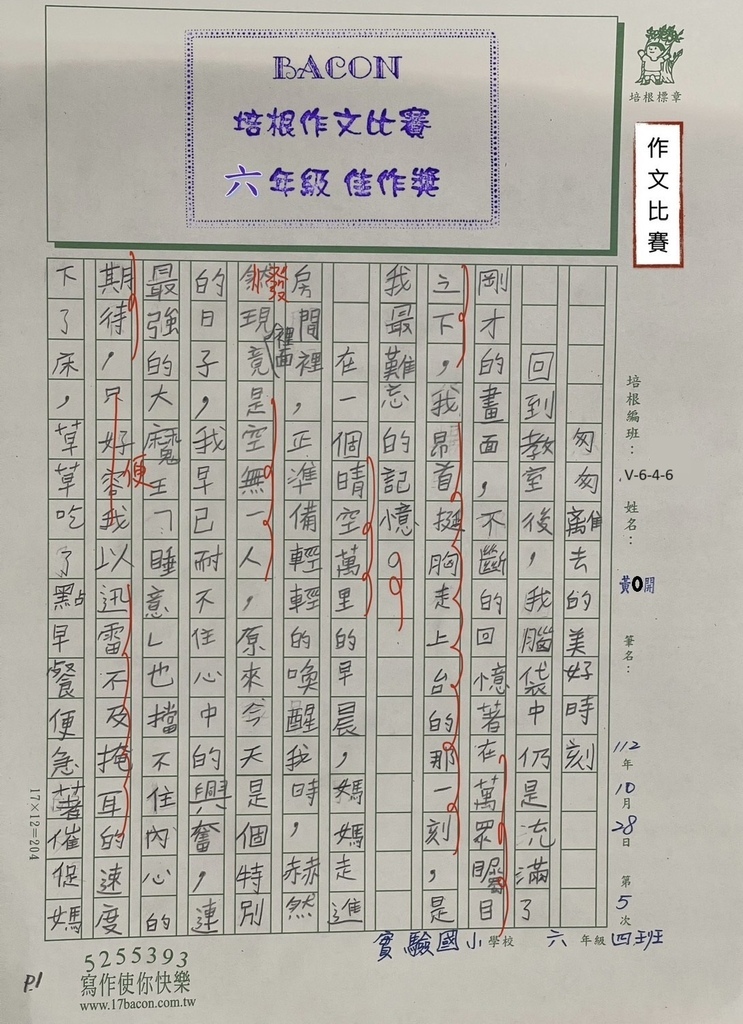 BACON
培根作文比賽
六年級 佳作獎
培根標章
作文比賽
培根編班：V-6-4-6 姓名：黃O開 筆名：
112年10月28日 第5次
匆匆離去的美好時刻
回到教室後，我腦袋中仍是流滿了
剛才的畫面，不斷的回憶著在萬眾矚目
之下，我昂首挺胸走上台的那一刻，是
我最難忘的記憶。
在一個晴空萬里的早晨，媽媽走進
房間裡，正準備輕輕的喚醒我時，赫然
發現裡面竟是空無一人，原來今天是個特別
的日子，我早已耐不住心中的興奮，連
最強的大魔王「睡意」也擋不住內心的
期待，只好便我以迅雷不及掩耳的速度
下了床，草草吃了點早餐便急著催促媽
17×12=204
實驗國小學校 六年級四班
5255393
寫作使你快樂
www.17bacon.com.tw
P.1